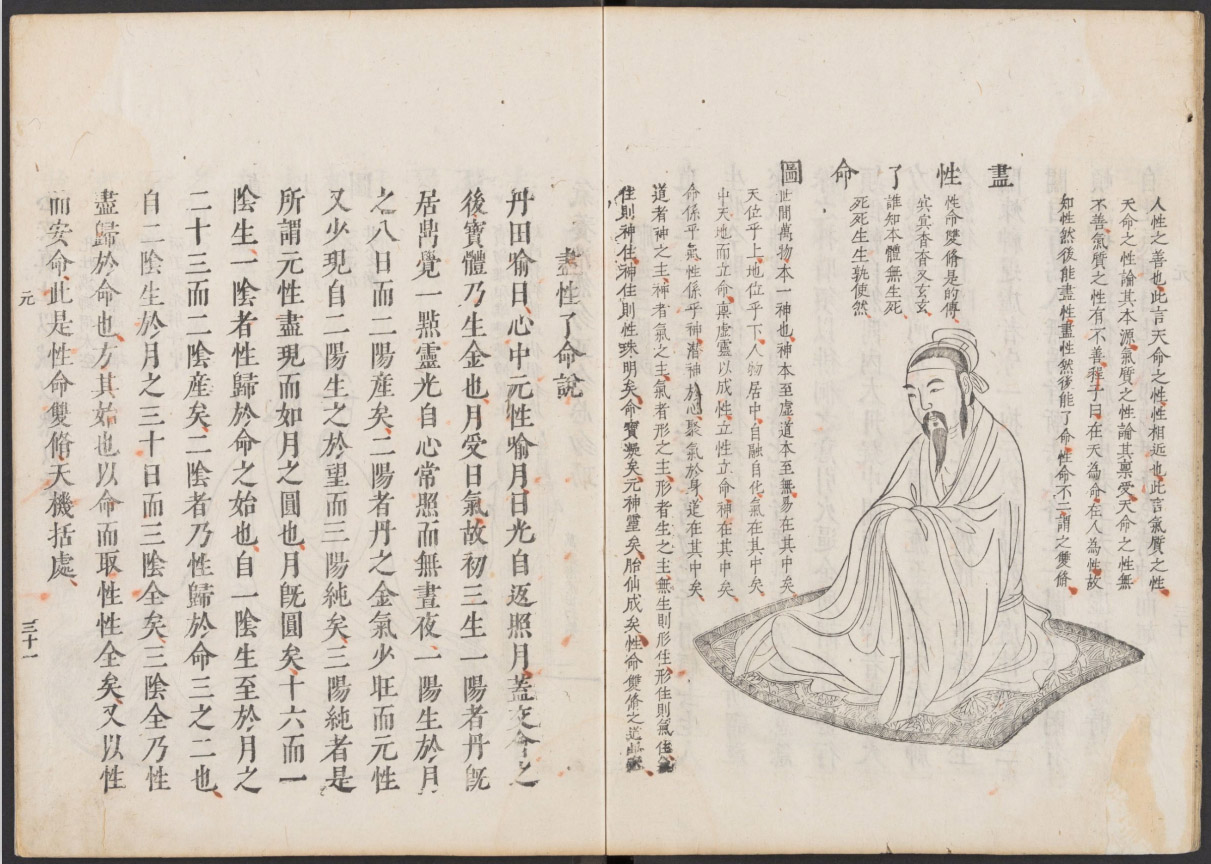 盡性了命圖
人性之善也此言天命之性性相近也此言氣質之性
天命之性論其本源氣質之性論其稟受天命之性無
不善氣質之性有不善程子曰在天為命在人為性故
知性然後能盡性盡性然後能了命性命不二謂之雙脩
性命雙脩是的傳
冥冥杳杳又玄玄
誰知本體無生死
死死生生孰使然
世間萬物本一神也神本至虛道本至無易在其中矣
天位乎上地位乎下人物居中自融自化氣在其中矣
中天地而立命稟虛靈以成性立性立命神在其中矣
命係乎氣性係乎神潛神於心聚氣於身道在其中矣
道者神之主神者氣之主氣者形之主形者生之主無生則形住形住則氣住
住則神住神住則性珠明矣命寶凝矣元神靈矣胎仙成矣性命雙脩之道
盡性了命說
丹田喻日心中元性喻月日光自返照月蓋交合之
後寶體乃生金也月受日氣故初三生一陽者丹既
居鼎覺一點靈光自心常照而無晝夜一陽生於月
之八日而二陽產矣二陽者丹之金氣少旺而元性
又少現自二陽生之於望而三陽純矣三陽純者是
所謂元性盡現而如月之圓也月既圓矣十六而一
陰生一陰者性歸於命之始也自一陰生至於月之
二十三而二陰產矣二陰者乃性歸於命三之二也
自二陰生於月之三十日而三陰全矣三陰全乃性
盡歸於命也方其始也以命而取性性全矣又以性
而安命此是性命雙脩天機括處
元
三十一